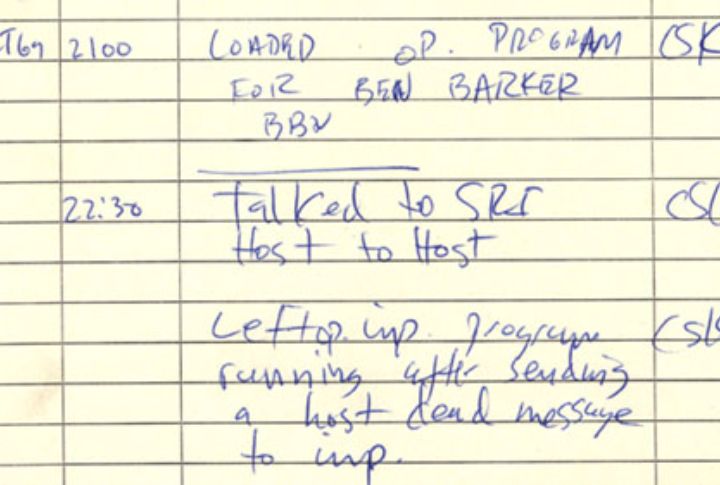 T69 2100 LOADED OP. PROGRAM (SK
FOR BEN BARKER
BBN
22:30 Talked to SRI (SL
Host to Host
Left op. imp. program (SL
running after sending
a host dead message
to imp.